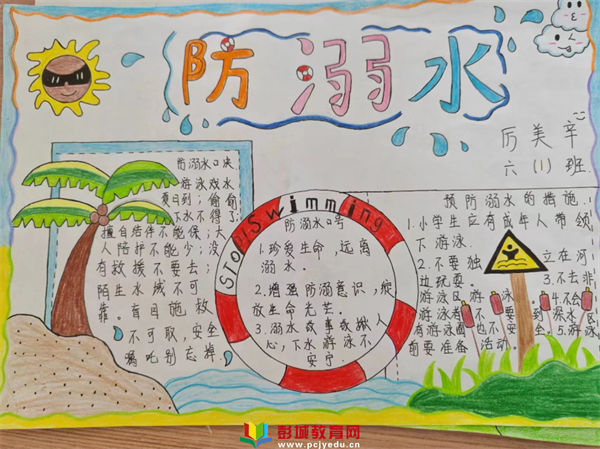 防溺水
厉美辛
六(1)班
防溺水口决
游泳戏水
夏日到;偷偷
下水不得了;
擅自结伴不能保;大
人陪护不能少;没
有救援不要去;
陌生水域不可
靠。盲目施救
不可取,安全
嘱咐别忘掉
STOP!Swimming
防溺水口号
1.珍爱生命,远离
溺水。
2.增强防溺意识,绽
放生命光芒。
3.溺水故事敌揪人
心,下水游泳不
安宁
预防溺水的措施
1.小学生应有成年人带领
下游泳。
2.不要独立在河
边玩耍。3.不去非
游泳区游泳4.不会
游泳者不要到深水区
有游泳圈也不安全5.游泳
前要准备活动
彭城教育网
www.pcjyedu.cn